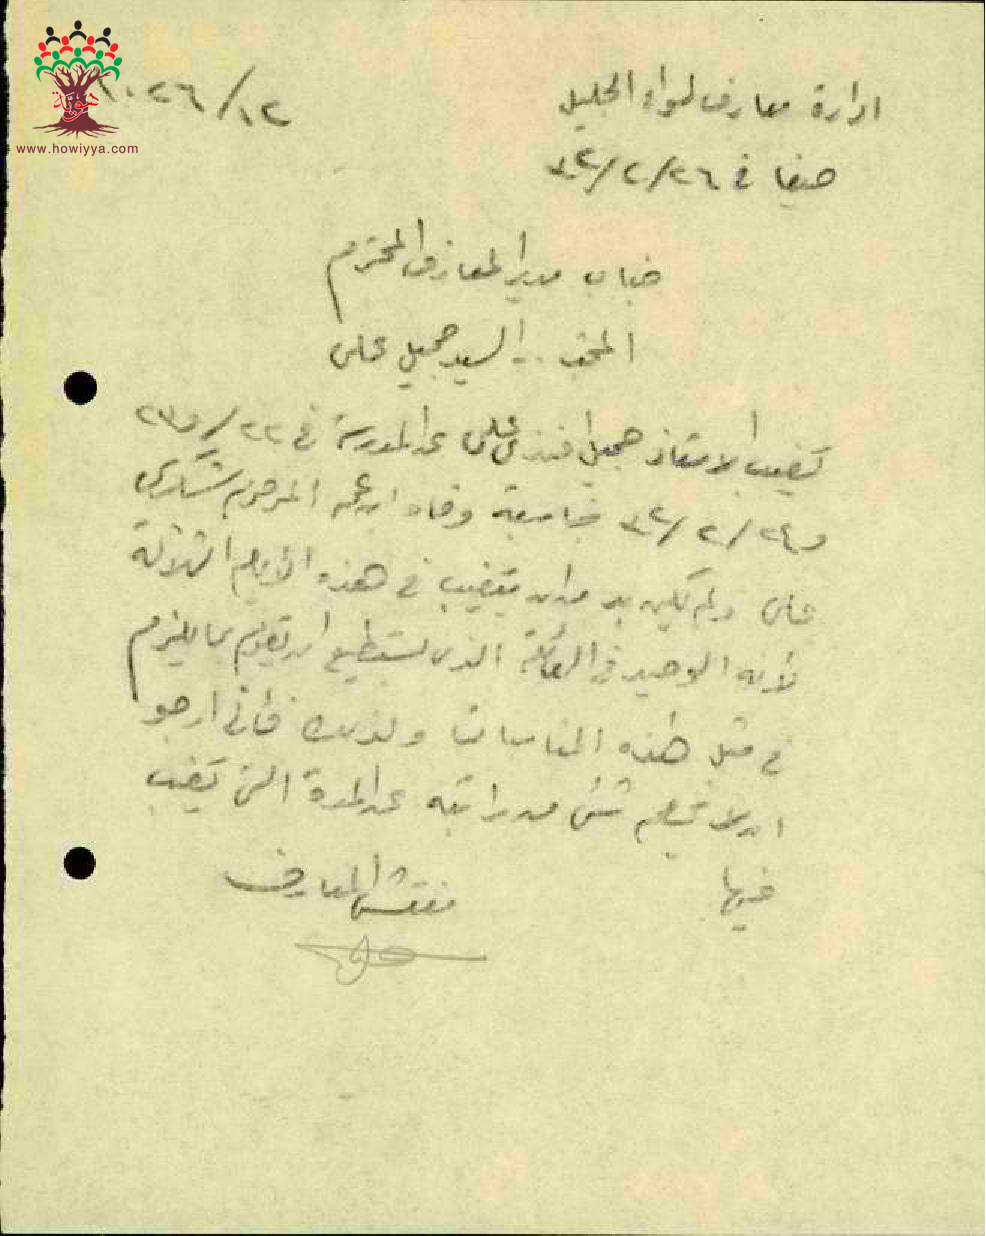 هوية
www.howiyya.com
ادارة معارف لواء الجليل
١٠٢٦/١٢
حيفا في ٤٢/٢/٢٦
جناب مدير المعارف المحترم
السيد جميل علي
تغيب الاستاذ جميل افندي علي عن المدرسة في ٢٢/و٢٣
و٢٤/٢/٤٢ بمناسبة وفاة ابن عمه المرحوم شكري
علي ولم يكن بد من ان يتغيب في هذه الايام الثلاثة
لأنه الوحيد في العائلة الذي يستطيع ان يقوم بما يلزم
في مثل هذه المناسبات ولذلك فاني ارجو
ان لا يخصم شئ من راتبه عن المدة التي تغيب
فيها
مفتش المعارف